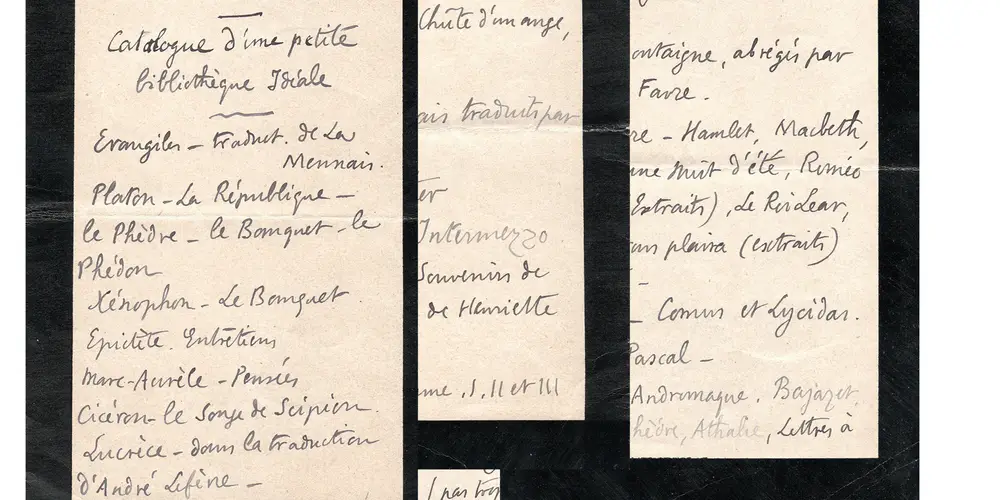 Catalogue d'une petite
bibliothèque Idéale
Evangiles – traduct. de La
Mennais.
Platon – La République –
le Phèdre – le Banquet – le
Phédon
Xénophon – Le Banquet
Epictète. Entretiens
Marc-Aurèle – Pensées
Cicéron – le Songe de Scipion
Lucrèce – dans la traduction
d'André Lefèvre –
Chûte d'un ange,
ais traduits par
ter
Intermezzo
Souvenirs de
de Henriette
me . I. II et III
( pas trop
ontaigne, abrégés par
Favre.
re – Hamlet, Macbeth,
une Nuit d'été, Roméo
(Extraits), Le Roi Lear,
ous plaira (extraits)
– Comus et Lycidas.
Pascal –
Andromaque. Bajazet.
hèdre, Athalie, Lettres à